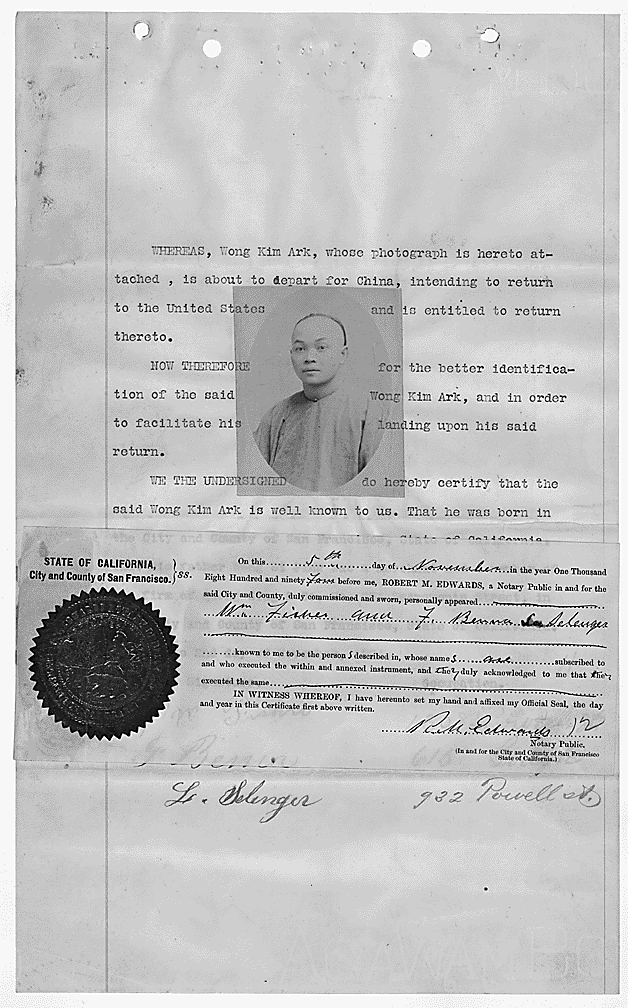 WHEREAS, Wong Kim Ark, whose photograph is hereto at-
tached , is about to depart for China, intending to return
to the United States and is entitled to return
thereto.
NOW THEREFORE for the better identifica-
tion of the said Wong Kim Ark, and in order
to facilitate his landing upon his said
return.
WE THE UNDERSIGNED do hereby certify that the
said Wong Kim Ark is well known to us. That he was born in
the City and County of San Francisco, State of California,
STATE OF CALIFORNIA,
City and County of San Francisco. } ss.
On this 5th day of November in the year One Thousand
Eight Hundred and ninety four before me, ROBERT M. EDWARDS, a Notary Public in and for the
said City and County, duly commissioned and sworn, personally appeared
Wm Fisher and F. Benna L. Selenger
known to me to be the person s described in, whose name s are subscribed to
and who executed the within and annexed instrument, and they duly acknowledged to me that they
executed the same
IN WITNESS WHEREOF, I have hereunto set my hand and affixed my Official Seal, the day
and year in this Certificate first above written.
R. M. Edwards
Notary Public.
(In and for the City and County of San Francisco
State of California.)
L. Selenger 932 Powell st.